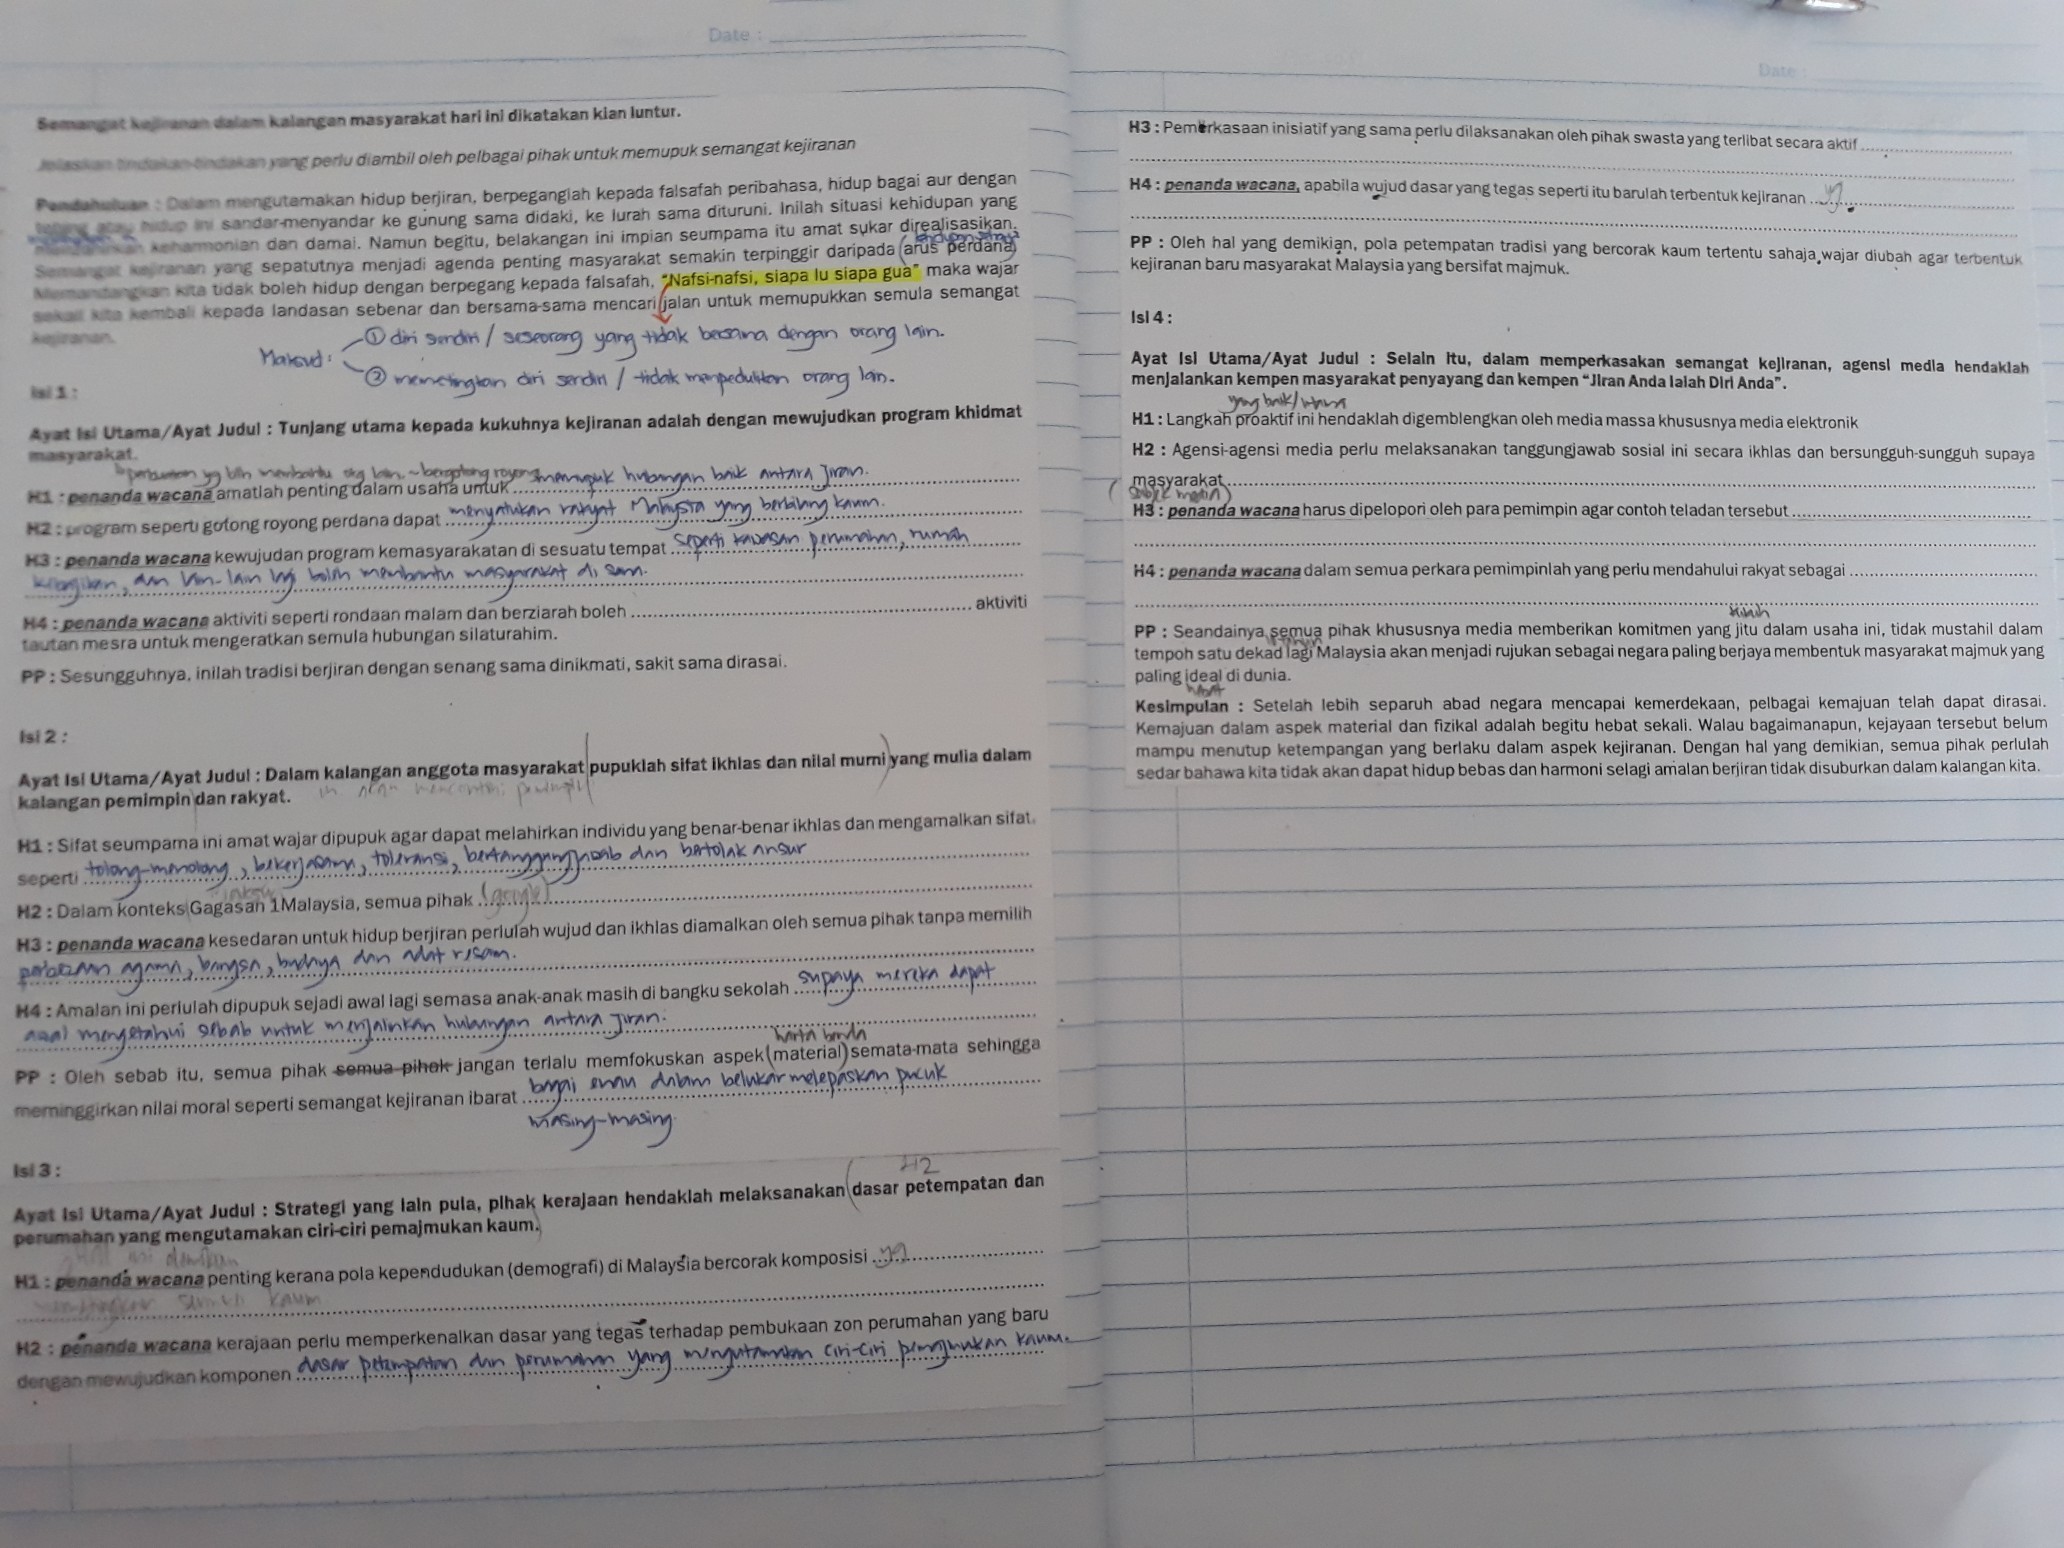 Date :
Semangat kejiranan dalam kalangan masyarakat hari ini dikatakan kian luntur.
Jelaskan tindakan-tindakan yang perlu diambil oleh pelbagai pihak untuk memupuk semangat kejiranan
Pendahuluan : Dalam mengutamakan hidup berjiran, berpeganglah kepada falsafah peribahasa, hidup bagai aur dengan
tebing atau hidup ini sandar-menyandar ke gunung sama didaki, ke lurah sama dituruni. Inilah situasi kehidupan yang
keharmonian dan damai. Namun begitu, belakangan ini impian seumpama itu amat sukar direalisasikan.
Semangat kejiranan yang sepatutnya menjadi agenda penting masyarakat semakin terpinggir daripada (arus perdana)
Memandangkan kita tidak boleh hidup dengan berpegang kepada falsafah, "Nafsi-nafsi, siapa lu siapa gua" maka wajar
sekali kita kembali kepada landasan sebenar dan bersama-sama mencari jalan untuk memupukkan semula semangat
kejiranan.
Maksud :
① diri sendiri / seseorang yang tidak bersama dengan orang lain.
② mementingkan diri sendiri / tidak mempedulikan orang lain.
Isi 1 :
Ayat Isi Utama/Ayat Judul : Tunjang utama kepada kukuhnya kejiranan adalah dengan mewujudkan program khidmat
masyarakat.
memupuk hubungan baik antara jiran.
H1 : penanda wacana amatlah penting dalam usaha untuk
H2 : program seperti gotong royong perdana dapat menyatukan rakyat Malaysia yang berbilang kaum.
H3 : penanda wacana kewujudan program kemasyarakatan di sesuatu tempat seperti kawasan perumahan, rumah
dan lain-lain lagi boleh membantu masyarakat di sana.
H4 : penanda wacana aktiviti seperti rondaan malam dan berziarah boleh aktiviti
tautan mesra untuk mengeratkan semula hubungan silaturahim.
PP : Sesungguhnya, inilah tradisi berjiran dengan senang sama dinikmati, sakit sama dirasai.
Isi 2 :
Ayat Isi Utama/Ayat Judul : Dalam kalangan anggota masyarakat pupuklah sifat ikhlas dan nilai murni yang mulia dalam
kalangan pemimpin dan rakyat.
H1 : Sifat seumpama ini amat wajar dipupuk agar dapat melahirkan individu yang benar-benar ikhlas dan mengamalkan sifat
seperti tolong-menolong, bekerjasama, toleransi, bertanggungjawab dan bertolak ansur
H2 : Dalam konteks Gagasan 1Malaysia, semua pihak (google)
H3 : penanda wacana kesedaran untuk hidup berjiran perlulah wujud dan ikhlas diamalkan oleh semua pihak tanpa memilih
perbezaan agama, bangsa, budaya dan adat resam.
H4 : Amalan ini perlulah dipupuk sejadi awal lagi semasa anak-anak masih di bangku sekolah supaya mereka dapat
awal mengetahui sebab untuk menjalinkan hubungan antara jiran.
harta benda
PP : Oleh sebab itu, semua pihak semua pihak jangan terlalu memfokuskan aspek (material) semata-mata sehingga
meminggirkan nilai moral seperti semangat kejiranan ibarat bagai enau dalam belukar melepaskan pucuk
masing-masing.
Isi 3 :
H2
Ayat Isi Utama/Ayat Judul : Strategi yang lain pula, pihak kerajaan hendaklah melaksanakan (dasar petempatan dan
perumahan yang mengutamakan ciri-ciri pemajmukan kaum.)
H1 : penanda wacana penting kerana pola kependudukan (demografi) di Malaysia bercorak komposisi yg
kaum
H2 : penanda wacana kerajaan perlu memperkenalkan dasar yang tegas terhadap pembukaan zon perumahan yang baru
dengan mewujudkan komponen dasar petempatan dan perumahan yang mengutamakan ciri-ciri pemajmukan kaum.
Date :
H3 : Pemerkasaan inisiatif yang sama perlu dilaksanakan oleh pihak swasta yang terlibat secara aktif
H4 : penanda wacana, apabila wujud dasar yang tegas seperti itu barulah terbentuk kejiranan yg
PP : Oleh hal yang demikian, pola petempatan tradisi yang bercorak kaum tertentu sahaja wajar diubah agar terbentuk
kejiranan baru masyarakat Malaysia yang bersifat majmuk.
Isi 4 :
Ayat Isi Utama/Ayat Judul : Selain itu, dalam memperkasakan semangat kejiranan, agensi media hendaklah
menjalankan kempen masyarakat penyayang dan kempen "Jiran Anda Ialah Diri Anda".
H1 : Langkah proaktif ini hendaklah digemblengkan oleh media massa khususnya media elektronik
H2 : Agensi-agensi media perlu melaksanakan tanggungjawab sosial ini secara ikhlas dan bersungguh-sungguh supaya
masyarakat
H3 : penanda wacana harus dipelopori oleh para pemimpin agar contoh teladan tersebut
H4 : penanda wacana dalam semua perkara pemimpinlah yang perlu mendahului rakyat sebagai
PP : Seandainya semua pihak khususnya media memberikan komitmen yang jitu dalam usaha ini, tidak mustahil dalam
tempoh satu dekad lagi Malaysia akan menjadi rujukan sebagai negara paling berjaya membentuk masyarakat majmuk yang
paling ideal di dunia.
Kesimpulan : Setelah lebih separuh abad negara mencapai kemerdekaan, pelbagai kemajuan telah dapat dirasai.
Kemajuan dalam aspek material dan fizikal adalah begitu hebat sekali. Walau bagaimanapun, kejayaan tersebut belum
mampu menutup ketempangan yang berlaku dalam aspek kejiranan. Dengan hal yang demikian, semua pihak perlulah
sedar bahawa kita tidak akan dapat hidup bebas dan harmoni selagi amalan berjiran tidak disuburkan dalam kalangan kita.